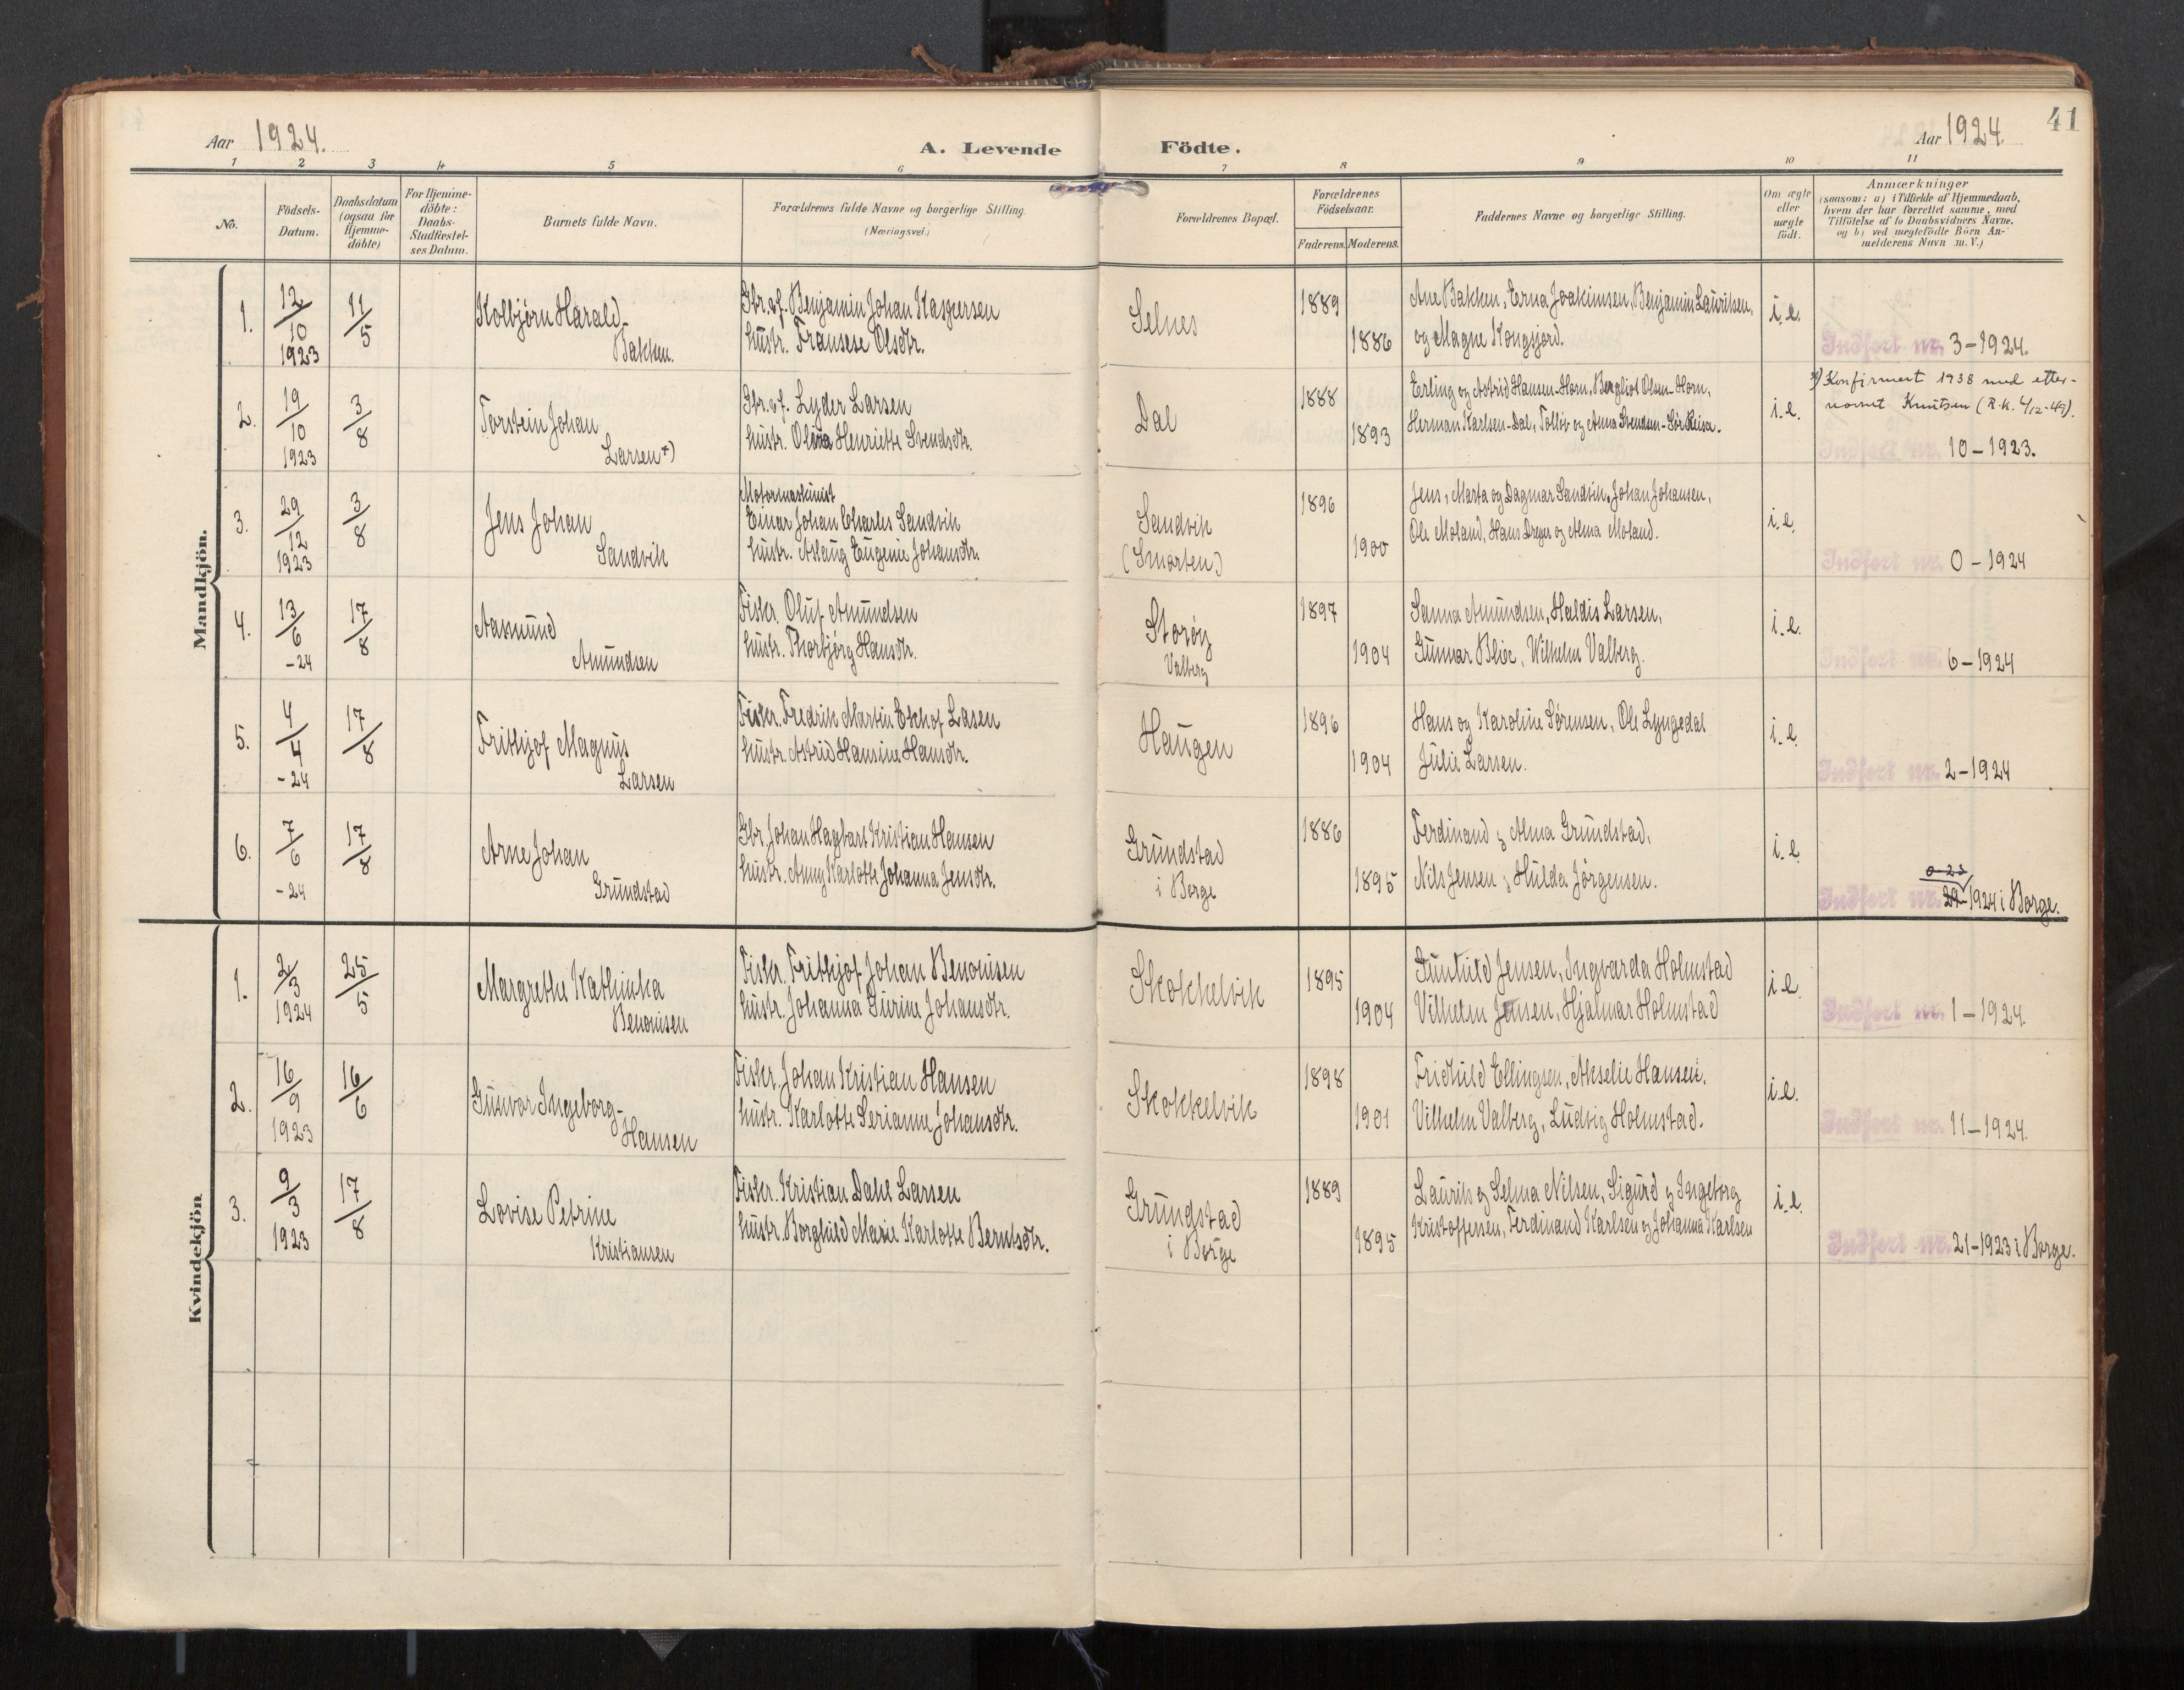 41
Aar 1924. A. Levende Födte. Aar 1924.
1 2 3 4 5 6 7 8 9 10 11
No.
Födsels-
Datum.
Daabsdatum
(ogsaa for
Hjemme-
döbte)
For Hjemme-
döbte:
Daabs-
Stadfæstel-
ses Datum.
Barnets fulde Navn.
Forældrenes fulde Navne og borgerlige Stilling.
(Næringsvei.)
Forældrenes Bopæl.
Forældrenes
Födselsaar.
Faderens. Moderens.
Faddernes Navne og borgerlige Stilling.
Om ægte
eller
uægte
födt.
Anmærkninger
(saasom: a) i Tilfælde af Hjemmedaab,
hvem der har forrettet samme, med
Tilföielse af to Daabsvidners Navne,
og b) ved uægtefödte Börn An-
melderens Navn m. V.)
Mandkjön.
1. 12/10 1923 11/5
Kolbjørn Harald
Bakken.
Gbr. o.f. Benjamin Johan Kaspersen
hustr. Fransese Olsdtr.
Selnes
1889
1886
Ane Bakken, Erna Joakimsen, Benjamin Lauritsen,
og Magne Kongsjord.
i.e.
Indført nr. 3-1924.
2. 19/10 1923 3/8
Torstein Johan
Larsen *)
Gbr. o.f. Lyder Larsen
hustr. Olevia Henriette Svendsdtr.
Dal
1888
1893
Erling og Astrid Hansen-Horn, Bergliot Olsen-Horn,
Herman Karlsen-Dal, Tollev og Anna Svendsen-Sør Reisa.
i.e.
*) Konfirmert 1938 med etter-
navnet Knutsen (R.k. 4/12-49).
Indført nr. 10-1923.
3. 29/12 1923 3/8
Jens Johan
Sandvik
Motormaskinist
Einar Johan Charles Sandvik
hustr. Aslaug Eugenie Johansdtr.
Sandvik
(Smorten)
1896
1900
Jens, Marta og Dagmar Sandvik, Johan Johansen,
Ole Moland, Hans Dreyer og Alma Moland.
i.e.
Indført nr. 0-1924
4. 13/6 -24 17/8
Aasmund
Amundsen
Fisker. Oluf Amundsen
hustr. Thorbjørg Hansdtr.
Storøy
Valberg
1897
1904
Sanna Amundsen, Haldis Larsen,
Gunnar Blix, Wilhelm Valberg.
i.e.
Indført nr. 6-1924
5. 4/4 -24 17/8
Frithjof Magnus
Larsen
Fisker. Fredrik Martin Ekhof Lasen
hustr. Astrid Hansine Hansdtr.
Haugen
1896
1904
Hans og Karoline Sørensen, Ole Lyngedal
Julie Larsen.
i.e.
Indført nr. 2-1924
6. 7/6 -24 17/8
Arne Johan
Grundstad
Gbr. Johan Hagbart Kristian Hansen
hustr. Anny Karlotte Johanna Jensdtr.
Grundstad
i Borge
1886
1895
Ferdinand og Alma Grundstad,
Nils Jensen, Hulda Jørgensen.
i.e.
0-23
Indført nr. 29-1924 i Borge.
Kvindekjön
1. 2/3 1924 25/5
Margrethe Kathinka
Benonisen
Fisker. Frithjof Johan Benonisen
hustr. Johanna Gurine Johansdtr.
Skokkelvik
1895
1904
Gunhild Jensen, Ingvarda Holmstad
Vilhelm Jensen, Hjalmar Holmstad
i.e.
Indført nr. 1-1924.
2. 16/9 1923 16/6
Gunvor Ingeborg
Hansen
Fisker. Johan Kristian Hansen
hustr. Karlotte Serianne Johansdtr.
Skokkelvik
1898
1901
Fridhild Ellingsen, Akselie Hansen,
Vilhelm Valberg, Ludvig Holmstad.
i.e.
Indført nr. 11-1924.
3. 9/3 1923 17/8
Lovise Petrine
Kristiansen
Fisker. Kristian Dahl Larsen
hustr. Borghild Marie Karlotte Berntsdtr.
Grundstad
i Borge
1889
1895
Laurits og Selma Nilsen, Sigurd og Ingeborg
Kristoffersen, Ferdinand Karlsen og Johanna Karlsen
i.e.
Indført nr. 21-1923 i Borge.